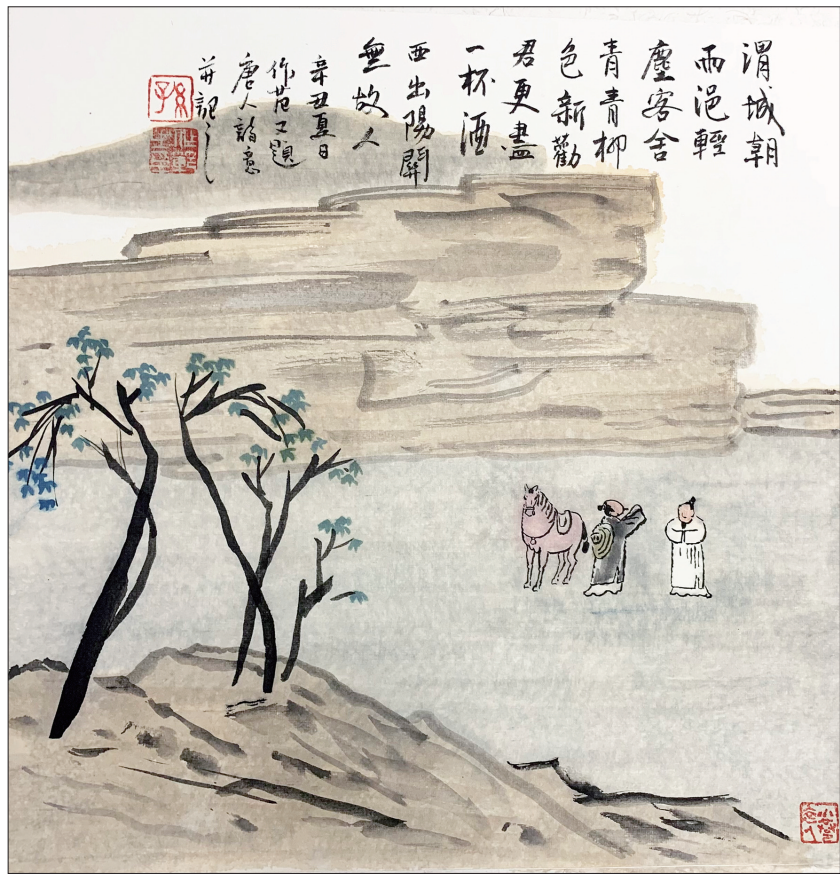 渭城朝
雨浥輕
塵客舍
青青柳
色新勸
君更盡
一杯酒
西出陽關
無故人
辛丑夏日
作范又題
唐人詩意
并記之